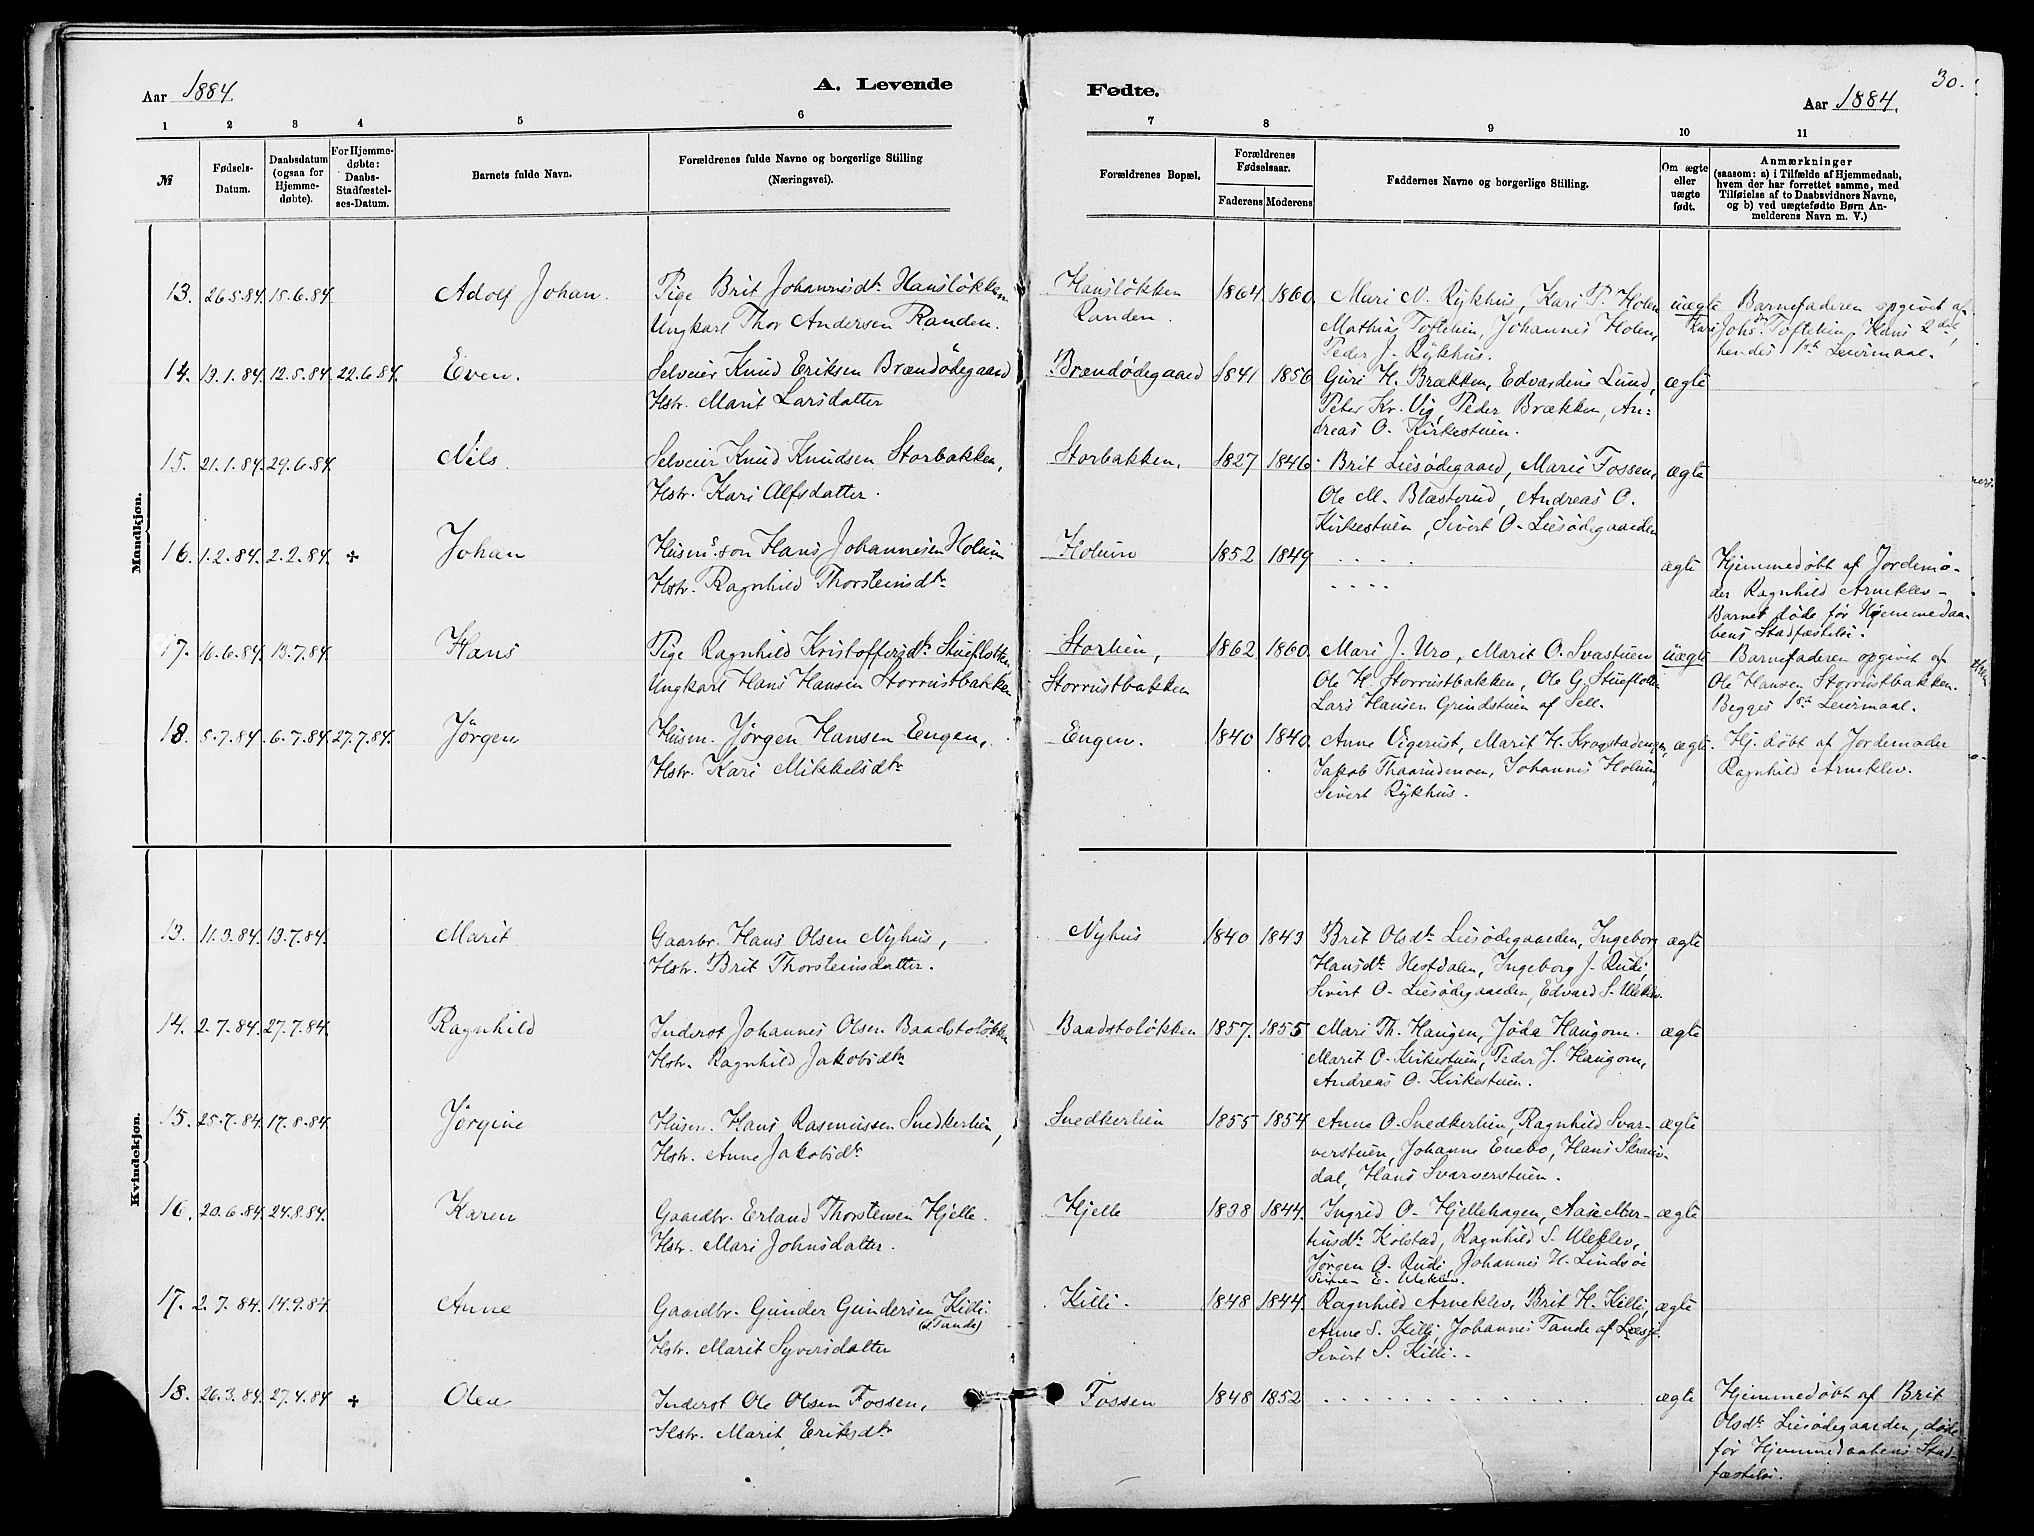 30.
Aar 1884.
A. Levende
Fødte.
Aar 1884.
1 2 3 4 5 6 7 8 9 10 11
№
Fødsels-
Datum.
Daabsdatum
(ogsaa for
Hjemme-
døbte).
For Hjemme-
døbte:
Daabs-
Stadfæstel-
ses-Datum.
Barnets fulde Navn.
Forældrenes fulde Navne og borgerlige Stilling
(Næringsvei).
Forældrenes Bopæl.
Forældrenes
Fødselsaar.
Faderens Moderens
Faddernes Navne og borgerlige Stilling.
Om ægte
eller
uægte
født.
Anmærkninger
(saasom: a) i Tilfælde af Hjemmedaab,
hvem der har forrettet samme, med
Tilføielse af to Daabsvidners Navne,
og b) ved uægtefødte Børn An-
melderens Navn m. V.)
Mandkjøn.
13. 26.5.84. 15.6.84. Adolf Johan. Pige Brit Johannesdt. Hansløkken
Ungkarl Thor Andersen Randen.
Hansløkken
Randen.
1864 1860.
Mari N. Rykhus, Kari P. Holen
Mathias Toftelien, Johannes Holen,
Peder J. Rykhus.
uægte
Barnefaderen opgivet af
Kari Johsdt. Toftelien, Hans 2det,
hendes 1ste Leiermaal.
14. 13.1.84. 12.5.84. 22.6.84. Even. Selveier Knud Eriksen Brændødegaard
Hstr. Marit Larsdatter
Brændødegaard
1841 1856
Guri H. Brækken, Edvardine Lund,
Peter Kr. Vig, Peder Brækken, An-
dreas O. Kirkestuen.
ægte
15. 21.1.84. 29.6.84. Nils. Selveier Knud Knudsen Storbakken,
Hstr. Kari Alfsdatter.
Storbakken.
1827 1846.
Brit Liesødegaard, Marie Fossen,
Ole M. Blæsterud, Andreas O.
Kirkestuen, Sivert O. Liesødegaarden
ægte
16. 1.2.84. 2.2.84. + Johan Husms. søn Hans Johannesen Holum
Hstr. Ragnhild Thorsteinsdt.
Holum
1852 1849
. . . . .
. . . .
ægte
Hjemmedøbt af Jordemo-
der Ragnhild Arneklev -
Barnet døde før Hjemmedaa-
bens Stadfæstelse.
17. 16.6.84. 13.7.84. Hans Pige Ragnhild Kristoffersdt. Stueflotten
Ungkarl Hans Hansen Storrustbakken
Storlien,
Storrustbakken
1862 1860.
Mari J. Uro, Marit O. Svastuen
Ole H. Storrustbakken, Ole G. Stueflotten
Lars Hansen Grindstuen af Sell.
uægte
Barnefaderen opgivet af
Ole Hansen Storrustbakken.
Begges 1ste Leiermaal.
18. 5.7.84. 6.7.84. 27.7.84. Jørgen Husm. Jørgen Hansen Engen,
Hstr. Kari Mikkelsdt.
Engen.
1840 1840.
Anne Vigerust, Marit H. Krogstadengen,
Jakob Thaarudmoen, Johannes Holum,
Sivert Rykhus.
ægte.
Hj. døbt af Jordemoder
Ragnhild Arneklev.
Kvindekjøn.
13. 11.3.84. 13.7.84. Marit Gaarbr. Hans Olsen Nyhus,
Hstr. Brit Thorsteinsdatter.
Nyhus
1840 1843
Brit Olsdt. Liesødegaarden, Ingeborg
Hansdt. Hestdalen, Ingeborg J. Rudi,
Sivert O. Liesødegaarden, Edvard S. Uleklev.
ægte
14. 2.7.84. 27.7.84. Ragnhild Inderst Johannes Olsen Baadstoløkken
Hstr. Ragnhild Jakobsdt.
Baadstoløkken
1857. 1855
Mari Th. Haugen, Jøda Haugom.
Marit O. Kirkestuen, Peder J. Haugom,
Andreas O. Kirkestuen.
ægte
15. 25.7.84. 17.8.84 Jørgine Husm. Hans Rasmussen Snedkerlien,
Hstr. Anne Jakobsdt.
Snedkerlien
1855 1854
Anne O. Snedkerlien, Ragnhild Svar-
verstuen, Johanne Enebo, Hans Skram-
dal, Hans Svarverstuen.
ægte
16. 20.6.84. 24.8.84. Karen Gaardbr. Erland Thorstensen Hjelle.
Hstr. Mari Johnsdatter.
Hjelle
1838 1844.
Ingrid O. Hjellehagen, Aase Mar-
tinsdt. Kolstad, Ragnhild S. Uleklev,
Jørgen O. Rudi, Johannes H. Lindsøe
E. Uleklev.
ægte
17. 2.7.84. 14.9.84. Anne Gaardbr. Gunder Gundersen Killi.
(Tande)
Hstr. Marit Syversdatter
Killi.
1848 1844.
Ragnhild Arneklev, Brit H. Killi,
Anne S. Killi, Johannes Tande af Lesje.
Sivert S. Killi.
ægte
18. 26.3.84. 27.4.84 + Olea Inderst Ole Olsen Fossen,
Hstr. Marit Eriksdt.
Fossen
1848 1852
. . . . . . . . . .
ægte
Hjemmedøbt af Brit
Olsdt. Liesødegaarden, døde
før Hjemmedaabens Stad-
fæstelse.